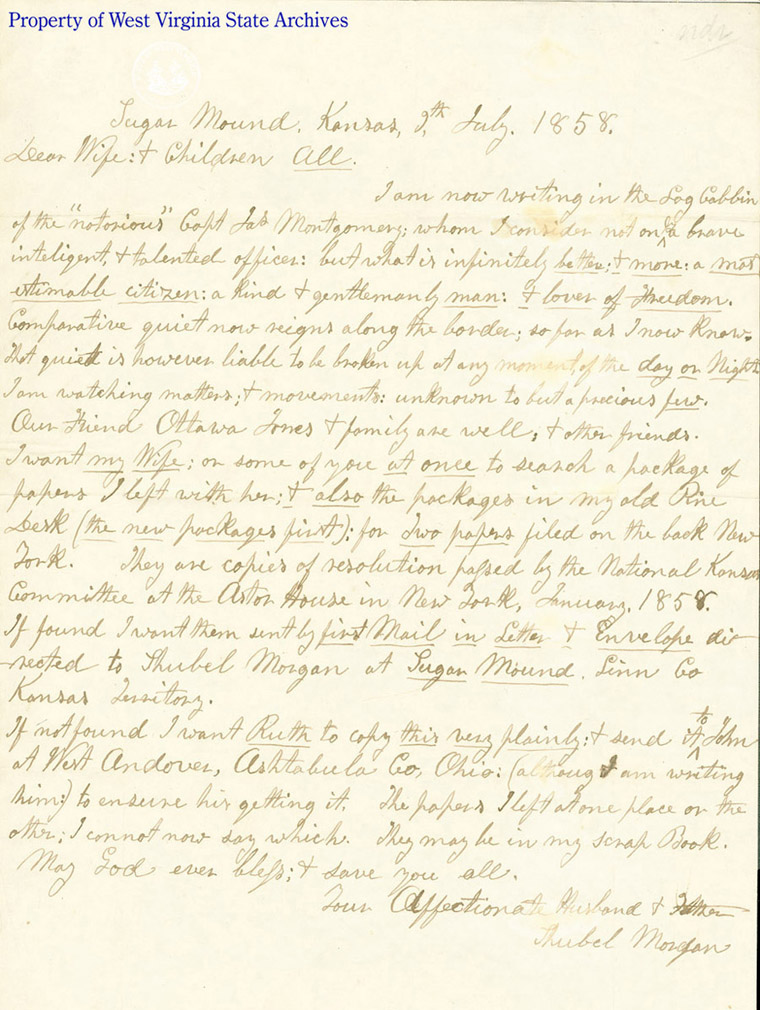 Property of West Virginia State Archives
Sugar Mound, Kansas, 9th July, 1858.
Dear Wife: & Children All.
I am now writing in the Log Cabbin
of the "notorious" Capt Jas Montgomery; whom I consider not only a brave
inteligent, & talented officer: but what is infinitely better; & more: a most
estimable citizen: a kind & gentlemanly man: & lover of Freedom.
Comparative quiet now reigns along the border; so far as I now know.
That quiet is however liable to be broken up at any moment, of the day or Night
I am watching matters; & movements: unknown to but a precious few.
Our Friend Ottawa Jones & family are well, & other friends.
I want my Wife; or some of you at once to search a package of
papers I left with her; & also the packages in my old Pine
Desk (the new packages first); for Two papers filed on the back New
York. They are copies of resolution passed by the National Kansas
Committee at the Astor House in New York, January, 1858.
If found I want them sent by first Mail in Letter & Envelope di-
-rected to Shubel Morgan at Sugar Mound, Linn Co
Kansas Territory.
If not found I want Ruth to copy this very plainly; & send it to John
at West Andover, Ashtabula Co, Ohio: (althoug I am writing
him:) to ensure his getting it. The papers I left at one place or the
other; I cannot now say which. They may be in my scrap Book.
May God ever bless; & save you all.
Your Affectionate Husband & Father
Shubel Morgan